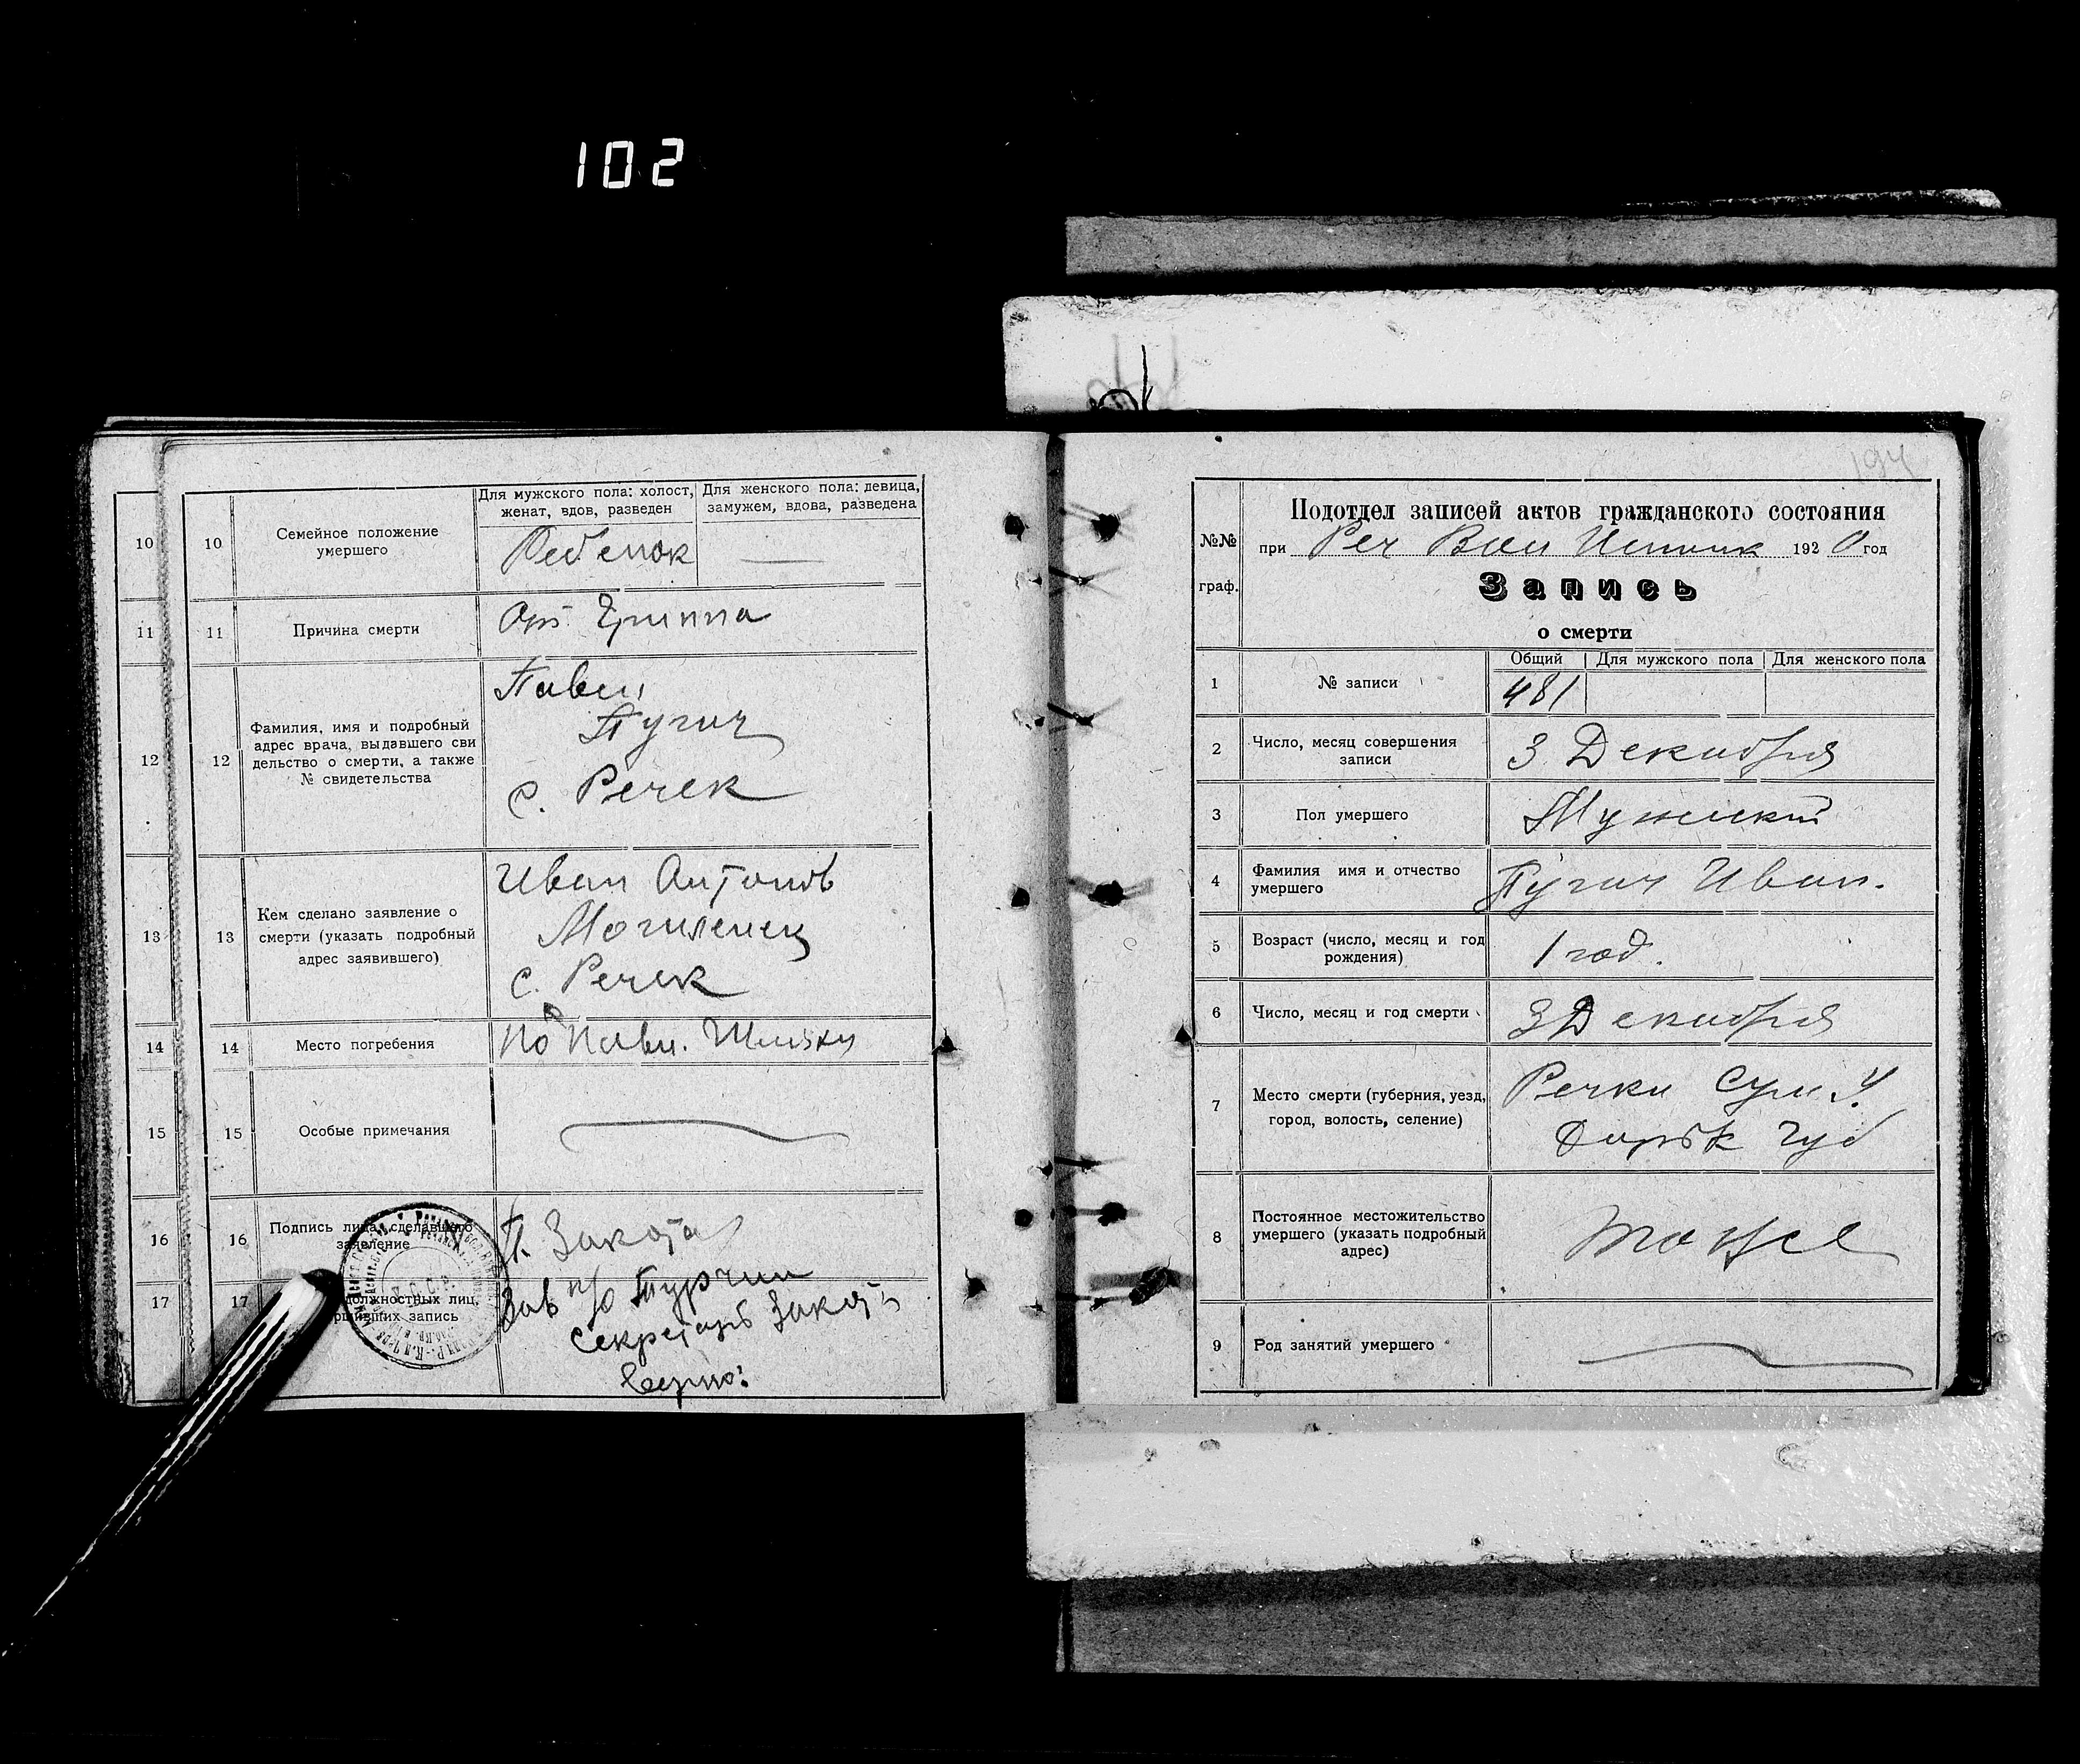 102
10
10
Семейное положение
умершего
Для мужского пола: холост,
женат, вдов, разведен
Для женского пола: девица,
замужем, вдова, разведена
Ребенок
11
11
Причина смерти
От Гриппа
12
12
Фамилия, имя и подробный
адрес врача, выдавшего сви
дельство о смерти, а также
№ свидетельства
Павел
Пугич
с. Речек
13
13
Кем сделано заявление о
смерти (указать подробный
адрес заявившего)
Иван Антонов
Могиленец
с. Речек
14
14
Место погребения
15
15
Особые примечания
16
16
Подпись лица, сделавшего
заявление
П. Закота
17
17
должностных лиц,
вших запись
Зав п/о Турчин
Секретарь Закота
Верно:
194
№№
граф.
Подотдел записей актов гражданского состояния
при Реч Вол Исполк 1920 год
Запись
о смерти
1
№ записи
Общий
Для мужского пола
Для женского пола
481
2
Число, месяц совершения
записи
3 Декабря
3
Пол умершего
Мужской
4
Фамилия имя и отчество
умершего
Пугич Иван.
5
Возраст (число, месяц и год
рождения)
1 год.
6
Число, месяц и год смерти
3 Декабря
7
Место смерти (губерния, уезд,
город, волость, селение)
Речки Сум У.
Харьк Губ
8
Постоянное местожительство
умершего (указать подробный
адрес)
тоже
9
Род занятий умершего